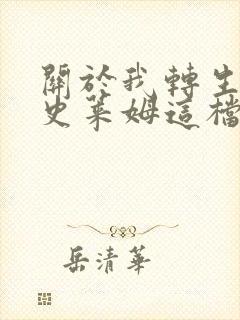 關於我轉生
史萊姆這檔
岳清華